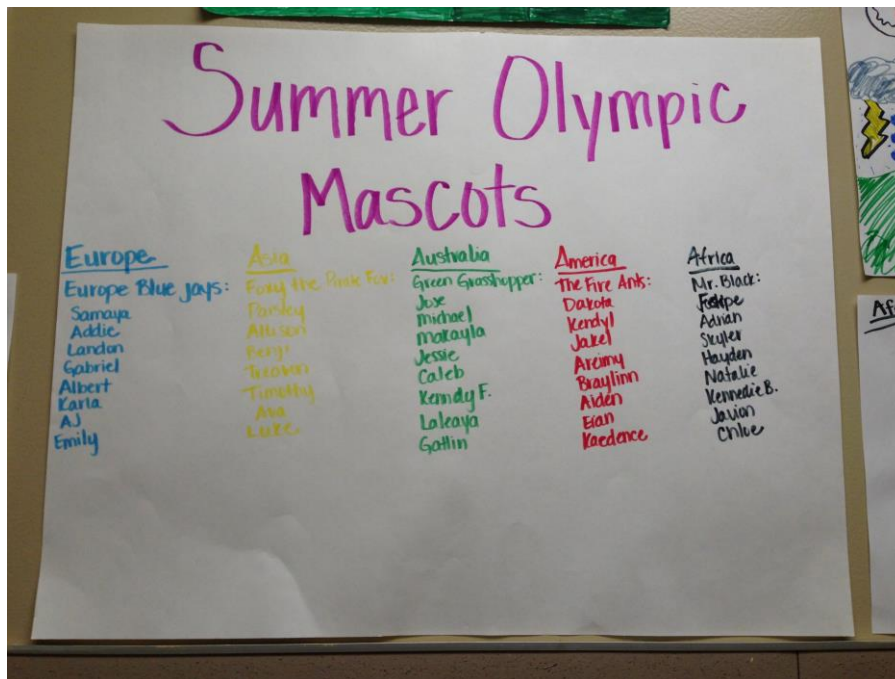 Summer Olympic
Mascots
Europe
Europe Blue Jays:
Samaya
Addie
Landon
Gabriel
Albert
Karla
AJ
Emily
Asia
Foxy the Pirate Fox:
Parsley
Allison
Timothy
Ava
Luke
Australia
Green Grasshopper:
Jose
michael
makayla
Jessie
Caleb
Kenndy F.
Lakaya
Gatlin
America
The Fire Ants:
Dakota
Kendyl
Jakel
Areimy
Braylinn
Aiden
Eian
Kaedence
Africa
Mr. Black:
Adrian
Skyler
Hayden
Natalie
Kennedie B.
Javion
Chloe
Af